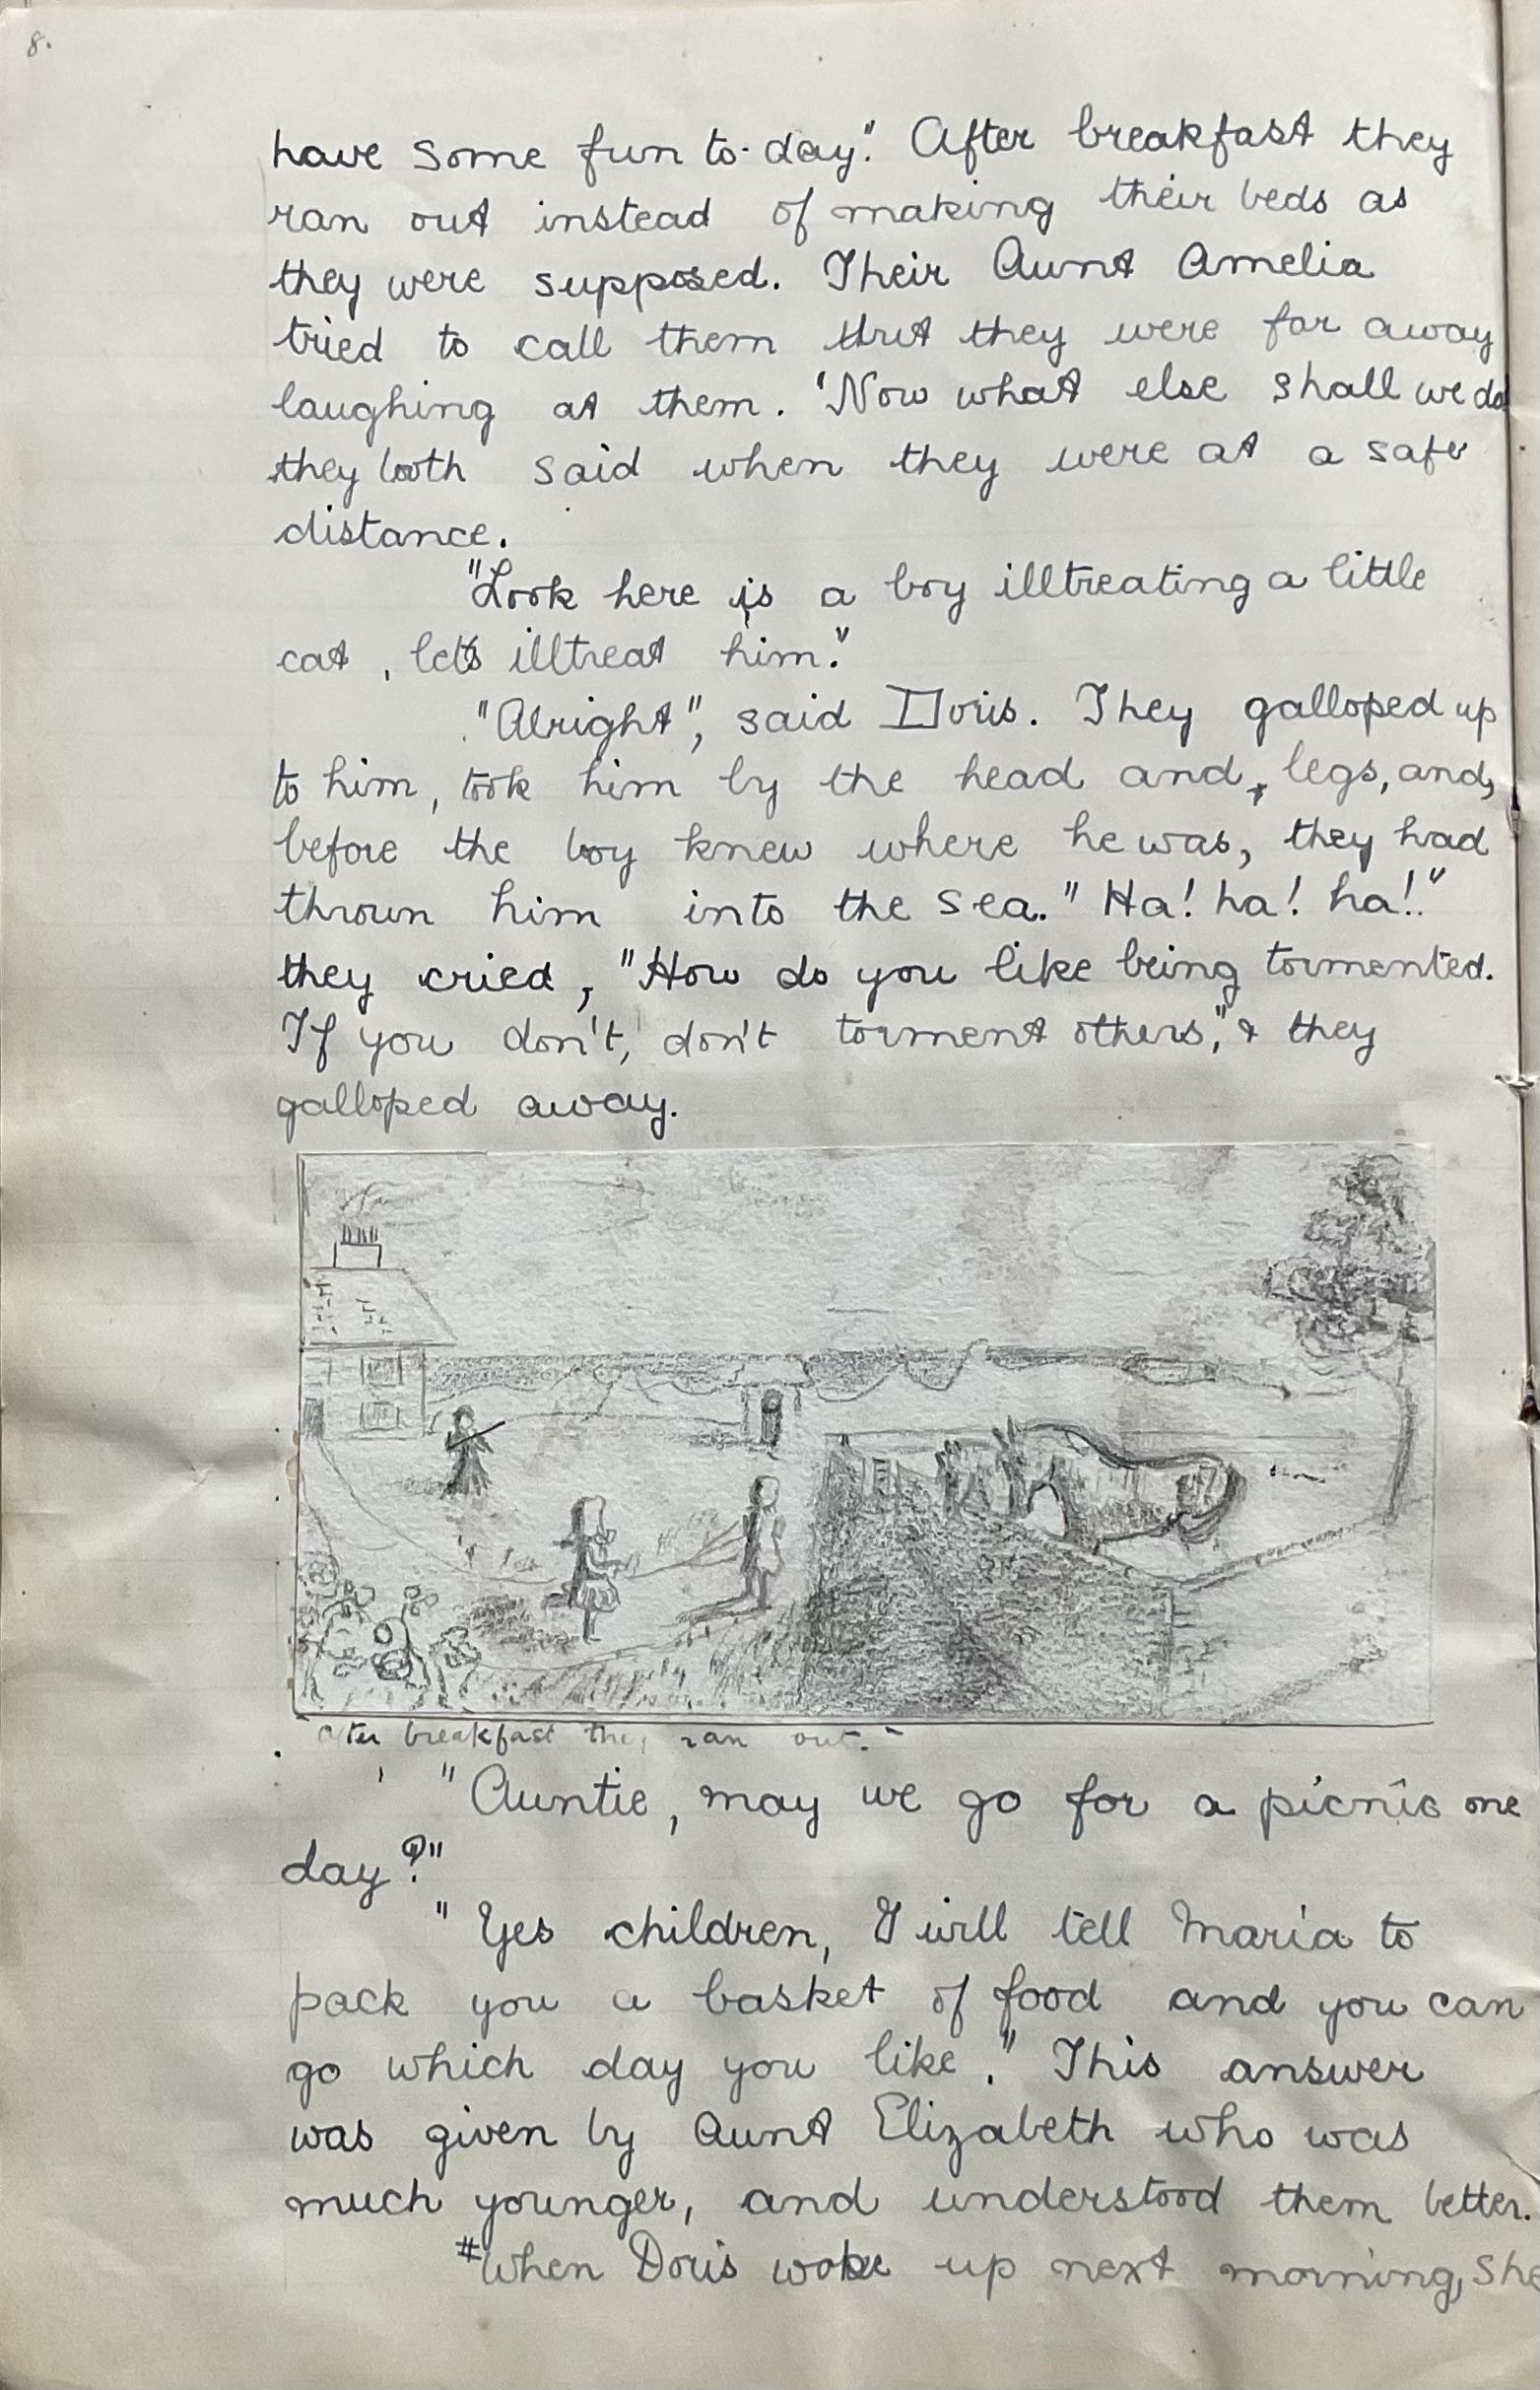 8.
have some fun to-day". After breakfast they
ran out instead of making their beds as
they were supposed. Their Aunt Amelia
tried to call them but they were far away
laughing at them. "Now what else shall we do
they both said when they were at a safe
distance.
"Look here is a boy illtreating a little
cat, let's illtreat him."
"Alright", said Doris. They galloped up
to him, took him by the head and, legs, and,
before the boy knew where he was, they had
thrown him into the sea. "Ha! ha! ha!"
they cried, "How do you like being tormented.
If you don't, don't torment others," & they
galloped away.
"After breakfast they ran out."
"Auntie, may we go for a picnic one
day?"
"Yes children, I will tell Maria to
pack you a basket of food and you can
go which day you like." This answer
was given by Aunt Elizabeth who was
much younger, and understood them better.
#When Doris woke up next morning, she